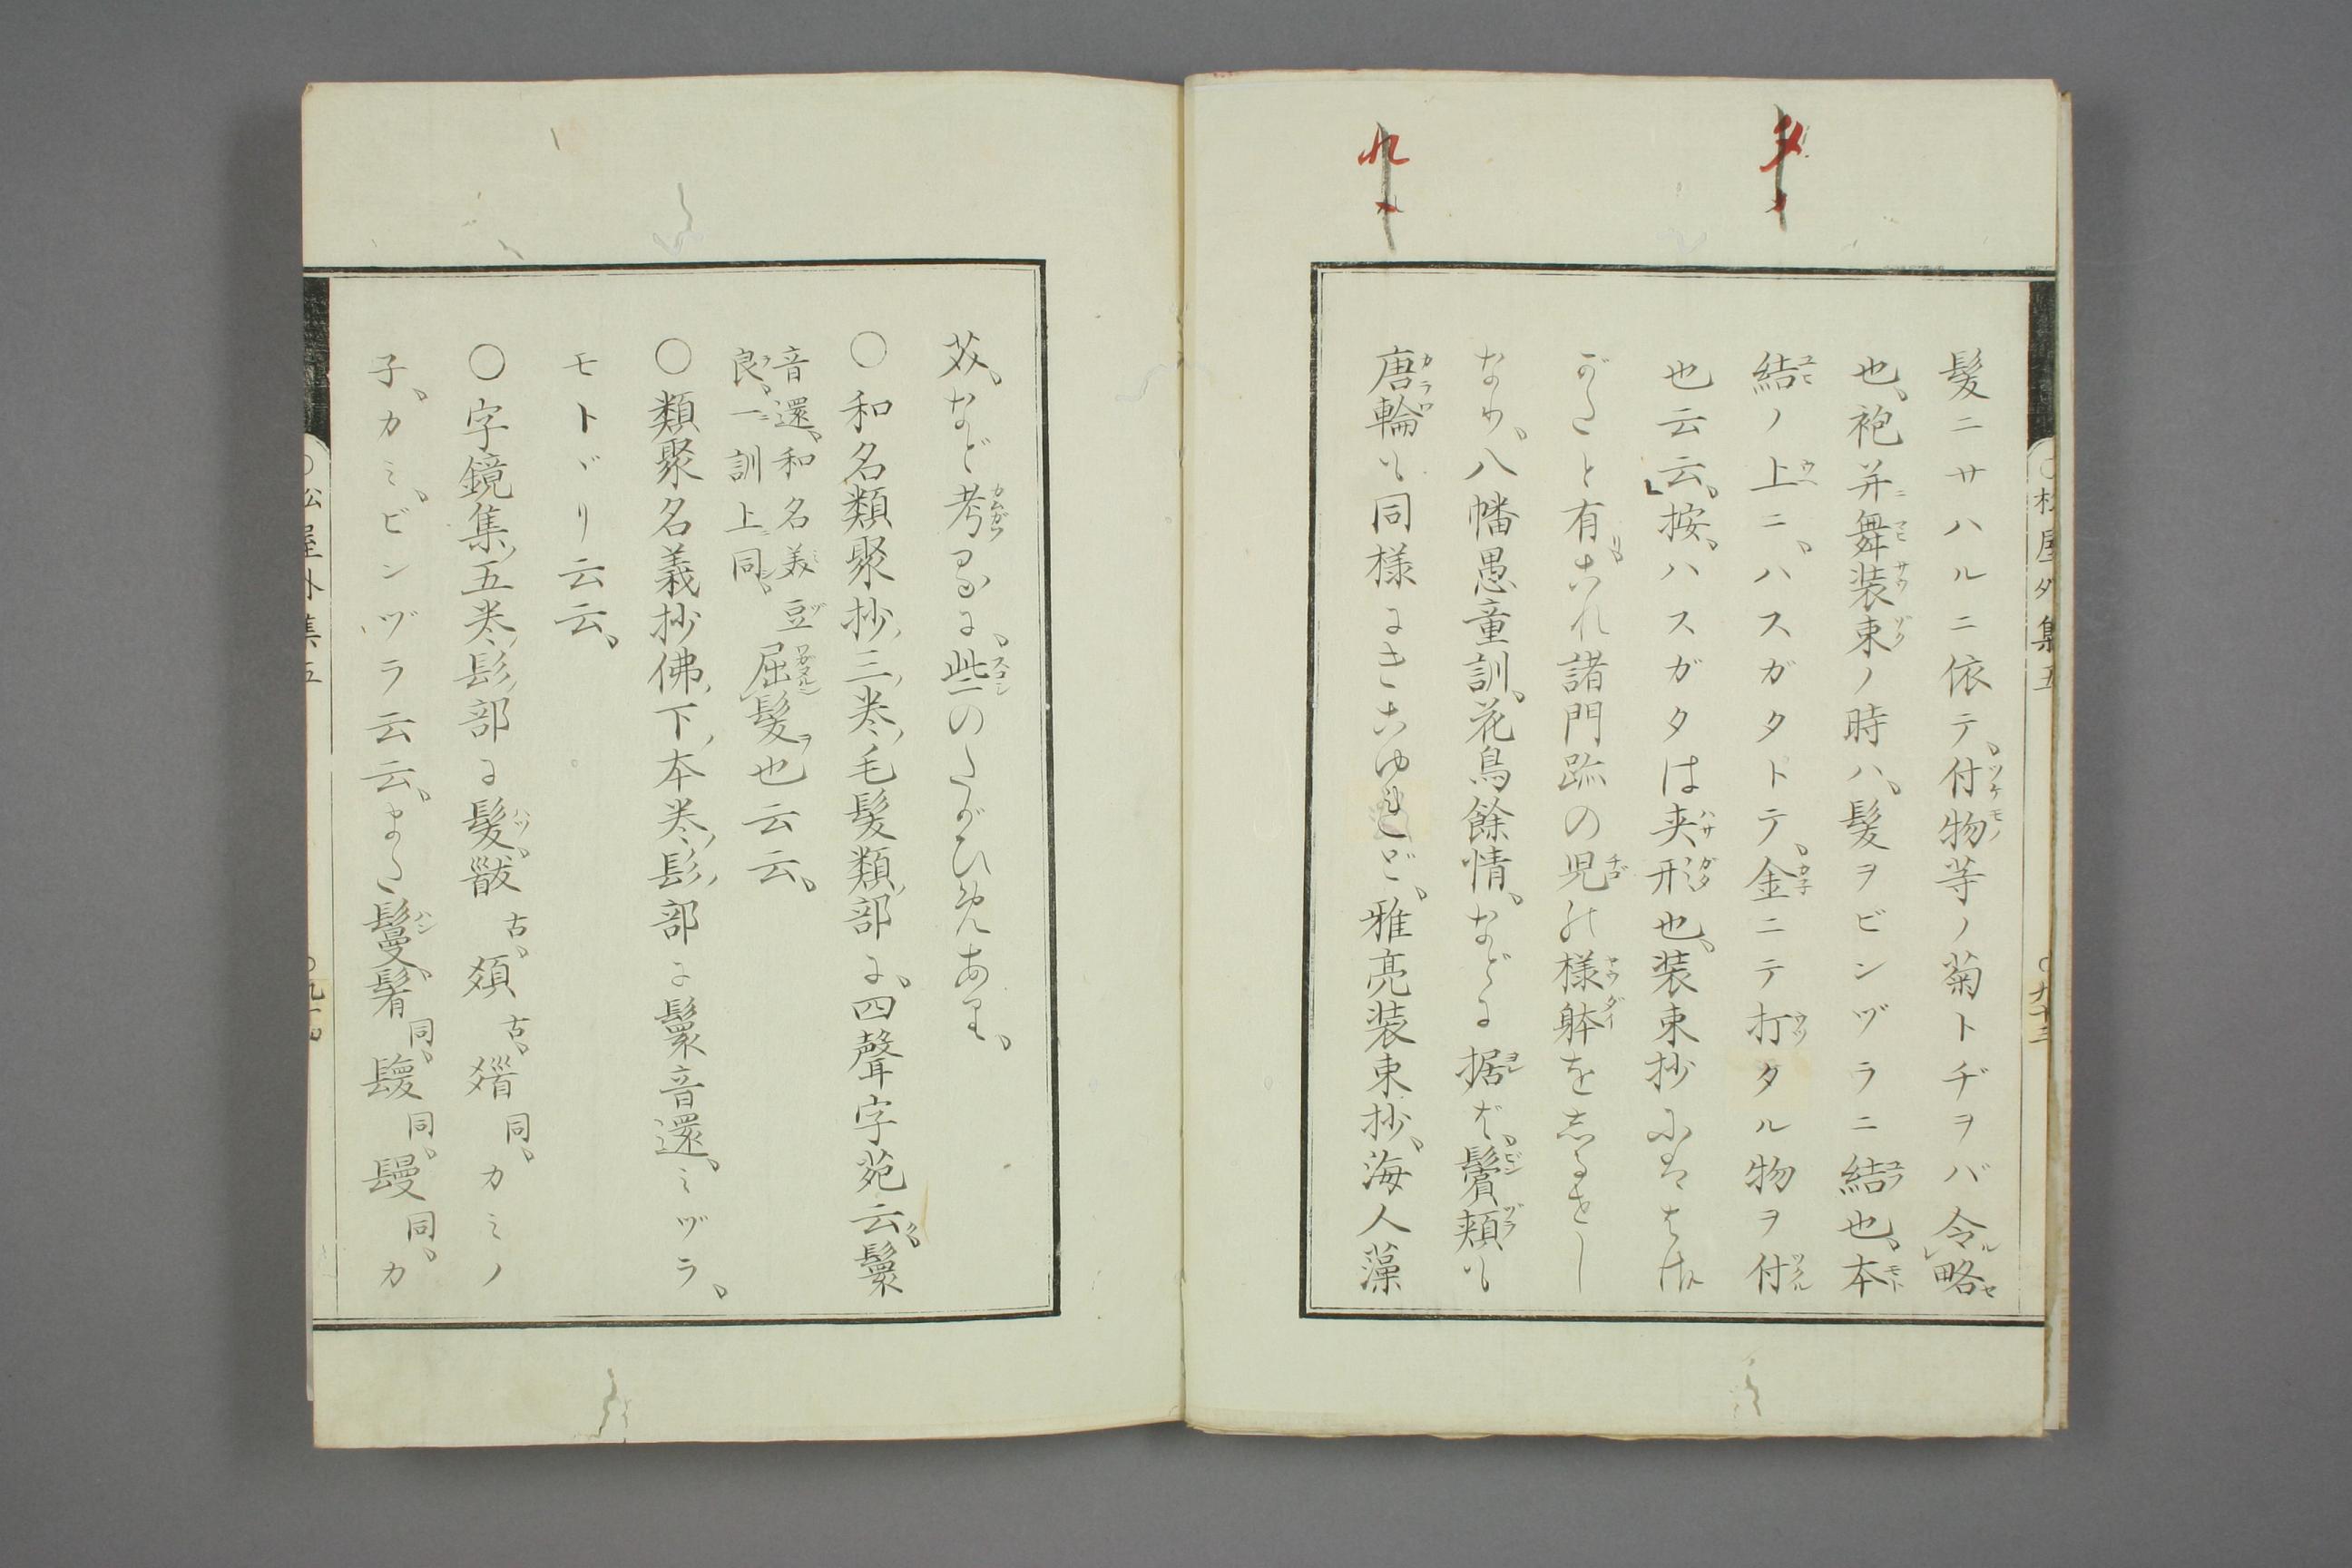 髪ニサハルニ依テ、付物等ノ菊トヂヲバ令略
也、袍并舞装束ノ時ハ、髪ヲビンヅラニ結也、本
結ノ上ニ、ハスガタトテ、金ニテ打タル物ヲ付
也云云、按、ハスガタは夹形也、装束抄
がたと有、これ諸門跡の児の様躰をしるせし
なり、八幡愚童訓、花鳥餘情、などに据ば、鬢頬も
唐輪も同様にきこゆれど、雅亮装束抄、海人藻
芥、など考るに、些のたがひめあり、
○和名類聚抄、三巻、毛髪類部に、四聲字苑云、鬟
音還、和名美豆
良、一訓上同、
屈髪也云云、
○類聚名義抄佛下本巻、髟部に鬟音還、ミヅラ、
モトヾリ云云、
○字鏡集五巻、髟部に髪、
古、
古、
同、カミノ
子、カミ、ビンヅラ云云、また鬘、
同、
同、
同、カ
松屋外集五
九十三
松屋外集五